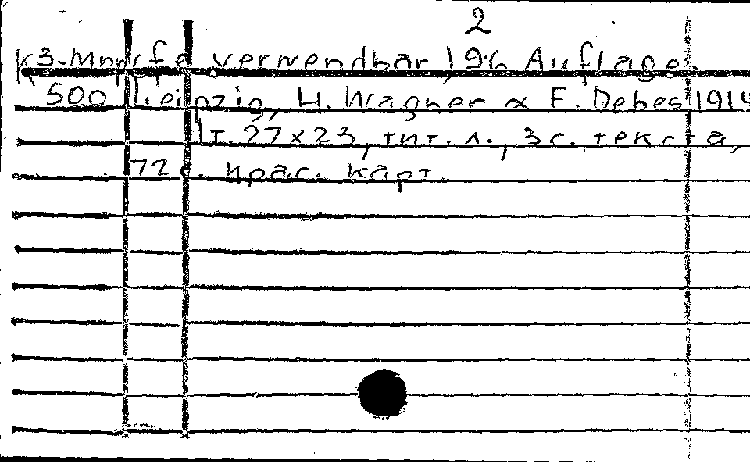 2
К3-Мир verwendbar, 196 Auflage
500 Leipzig, H. Wagner & E. Debes 1914
1т. 27х23, тит. л., 3 с. текста,
72 с. крас. карт.